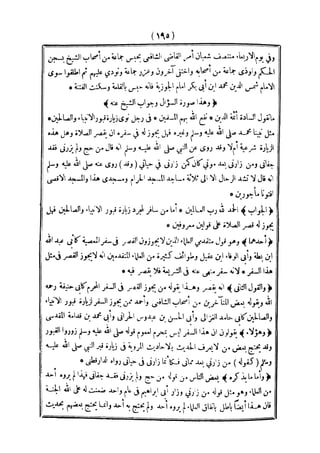 ﴿ ١٩٥ ﴾
وفي يوم الاربعاء منتصف شعبان أمر القاضي الشافعي بحبس جماعة من أصحاب الشيخ بسجن
الحكم وأوذي جماعة من أصحابه واختفى آخرون وعزر جماعة ونودي عليهم ثم اطلقوا سوى
الامام شمس الدين محمد ابن أبي بكر امام الجوزية فانه حبس بالقلعة وسكنت الفتنة *
﴿ وهذا صورة السؤال وجواب الشيخ عنه ﴾
ماتقول السادة أئمة الدين * نفع الله بهم المسلمين * في رجل نوى زيارة قبور الانبياء والصالحين *
مثل نبينا محمد صلى الله عليه وسلم وغيره فهل يجوز له في سفره ان يقصر الصلاة وهل هذه
الزيارة شرعية أم لا وقد روى عن النبي صلى الله عليه وسلم انه قال من حج ولم يزرني فقد
جفاني ومن زارني بعد موتي كان كمن زارني في حياتي (وقد) روى عنه صلى الله عليه وسلم
انه قال لا تشد الرحال الا الى ثلاثة مساجد المسجد الحرام ومسجدي هذا والمسجد الاقصى
افتونا مأجورين *
﴿ الجواب ﴾ الحمد لله رب العالمين * أما من سافر لمجرد زيارة قبور الانبياء والصالحين فهل
يجوز له قصر الصلاة على قولين معروفين *
﴿ أحدهما ﴾ وهو قول متقدمي العلماء الذين لا يجوزون القصر في سفر المعصية كأبي عبد الله
ابن بطة وأبي الوفاء ابن عقيل وطوائف كثيرة من العلماء المتقدمين انه لا يجوز القصر في مثل
هذا السفر * لانه سفر منهى عنه في الشريعة فلا يقصر فيه *
﴿ والقول الثاني ﴾ انه يقصر وهذا يقوله من يجوز القصر في السفر المحرم كأبي حنيفة رحمه
الله ويقوله بعض المتأخرين من أصحاب الشافعي وأحمد ممن يجوز السفر لزيارة قبور الانبياء
والصالحين كأبي حامد الغزالي وأبي الحسن بن عبدوس الحراني وأبي محمد بن قدامة المقدسي
﴿ وهؤلاء ﴾ يقولون ان هذا السفر ليس بمحرم لعموم قوله صلى الله عليه وسلم زوروا القبور
وقد يحتج بعض من لا يعرف الحديث بالاحاديث المروية في زيارة قبر النبي صلى الله عليه
وسلم ( كقوله ) من زارني بعد مماتي فكأنما زارني في حياتي رواه الدارقطني *
﴿ وأما ما يذكره ﴾ بعض الناس من قوله من حج ولم يزرني فقد جفاني فهذا لم يروه أحد
من العلماء وهو مثل قوله من زارني وزار أبي ابراهيم في عام واحد ضمنت له على الله الجنة
فان هذا أيضا باطل باتفاق العلماء لم يروه أحد ولم يحتج به أحد وانما يحتج بعضهم بحديث